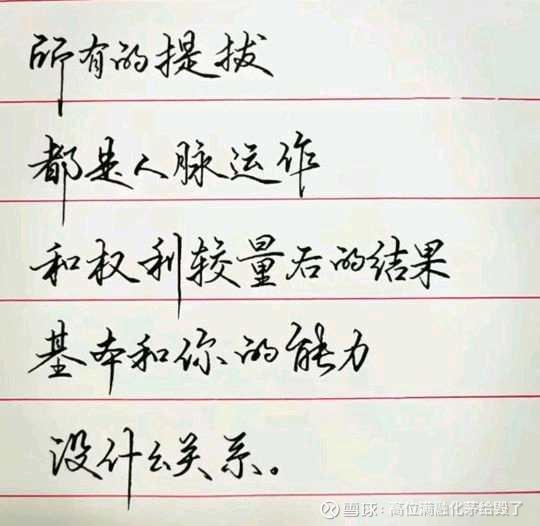 所有的提拔
都是人脉运作
和权利较量后的结果
基本和你的能力
没什么关系。
雪球：高位满融化茅给毁了